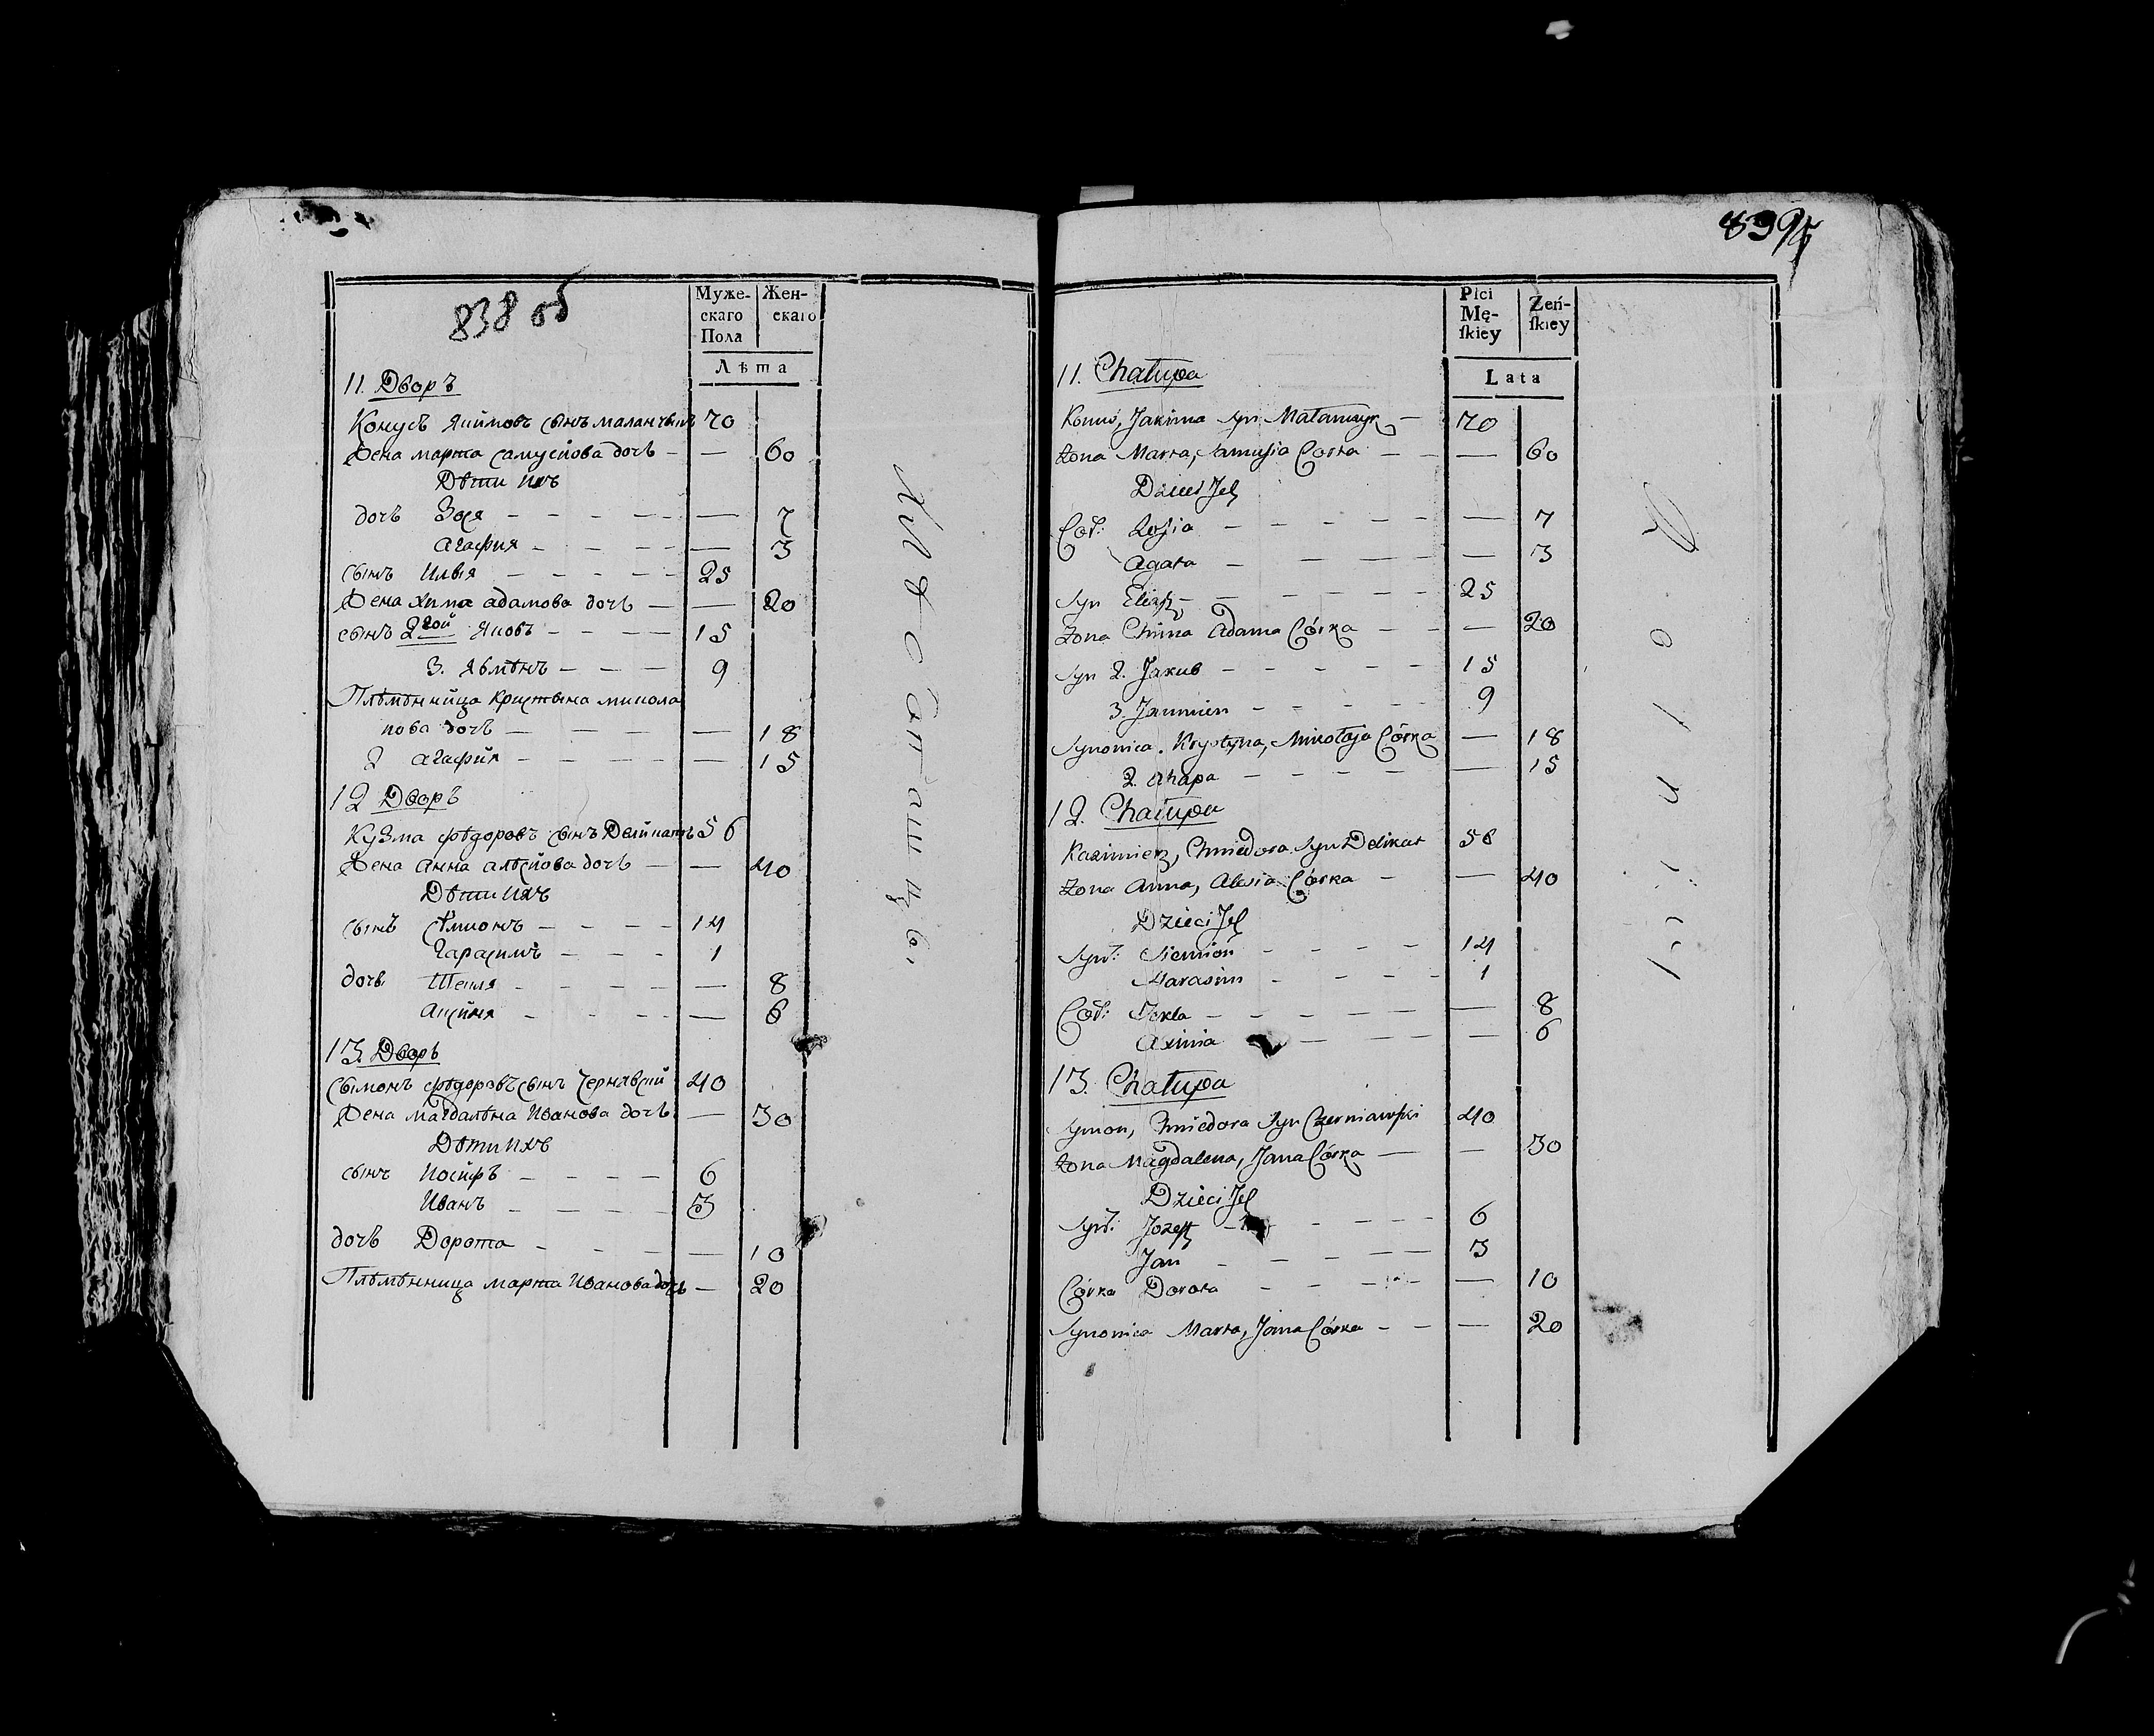 838 об
Муже-
скаго
Пола
Жен-
скаго
Лѣта
11. Дворъ
Конусъ Якимовъ сынъ маланчыкъ 70
Жена марта самусiова дочь — — 60
Дѣти ихъ
дочь Зося — — — — — 7
агафия — — — — 3
сынъ Илья — — — — 25
Жена химa адамова дочь — — 20
сынъ 2гой Яковъ — — — — 15
3. Яѣмѣнъ — — — 9
Плѣмѣнница кристына микола
нова дочь — — — — 18
2 агафия — — — — — 15
12 Дворъ
Кузма фѣдоровъ сынъ Деликатъ 56
Жена анна алѣсiова дочь — — 40
Дѣти ихъ
сынъ сѣмионъ — — — — 14
гарасимъ — — — 1
дочь Текля — — — — — 8
аксиня — — — — — 6
13. Дворъ
Сымонъ фѣдоровъ сынъ Чернявский 40
Жена магдалѣна Иванова дочь — 30
Дѣти ихъ
сынъ Иосифъ — — — — 6
Иванъ — — — — 3
дочь Дорота — — — — 10
Плѣмѣнница марта Иванова дочь — 20
839
Płci
Mę-
skiey
Zeń-
skiey
Lata
11. Chałupa
Konuś, Jakima Syn Małamczyk — 70
Żona Marta, Samusia Corka — — — 60
Dzieci Jch
Cór: Zosia — — — — — — 7
Agata — — — — — 3
Syn Eliasz — — — — — 25
Żona Chima Adama Córka — — — 20
Syn 2. Jakub — — — — — 15
3. Jaumien — — — — 9
Synowica. Krystyna, Mikołaja Córka — 18
2. Ahapa — — — — — 15
12. Chałupa
Kazimierz, Chwiedora Syn Delikat 56
Żona Anna, Alesia Córka — — 40
Dzieci Jch
Syn: Siemion — — — — 14
Harasim — — — — 1
Cór: Tekla — — — — — — 8
Axinia — — — — 6
13. Chałupa
Symon, Chwiedora Syn Czerniawski 40
Żona Magdalena, Jana Córka — — 30
Dzieci Jch
Syn: Jozeff — — — — 6
Jan — — — — — 3
Córka Dorota — — — — — — 10
Synowica Marta, Jana Córka — — — 20